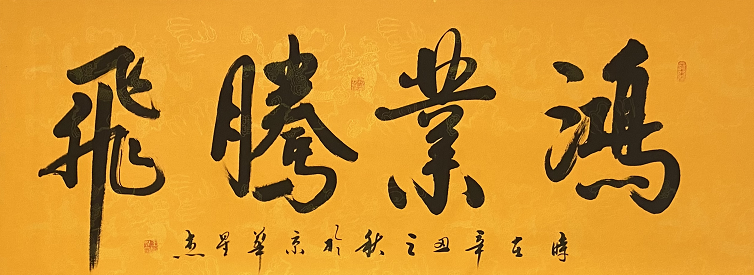 鴻業騰飛
時在辛丑之秋於京華星